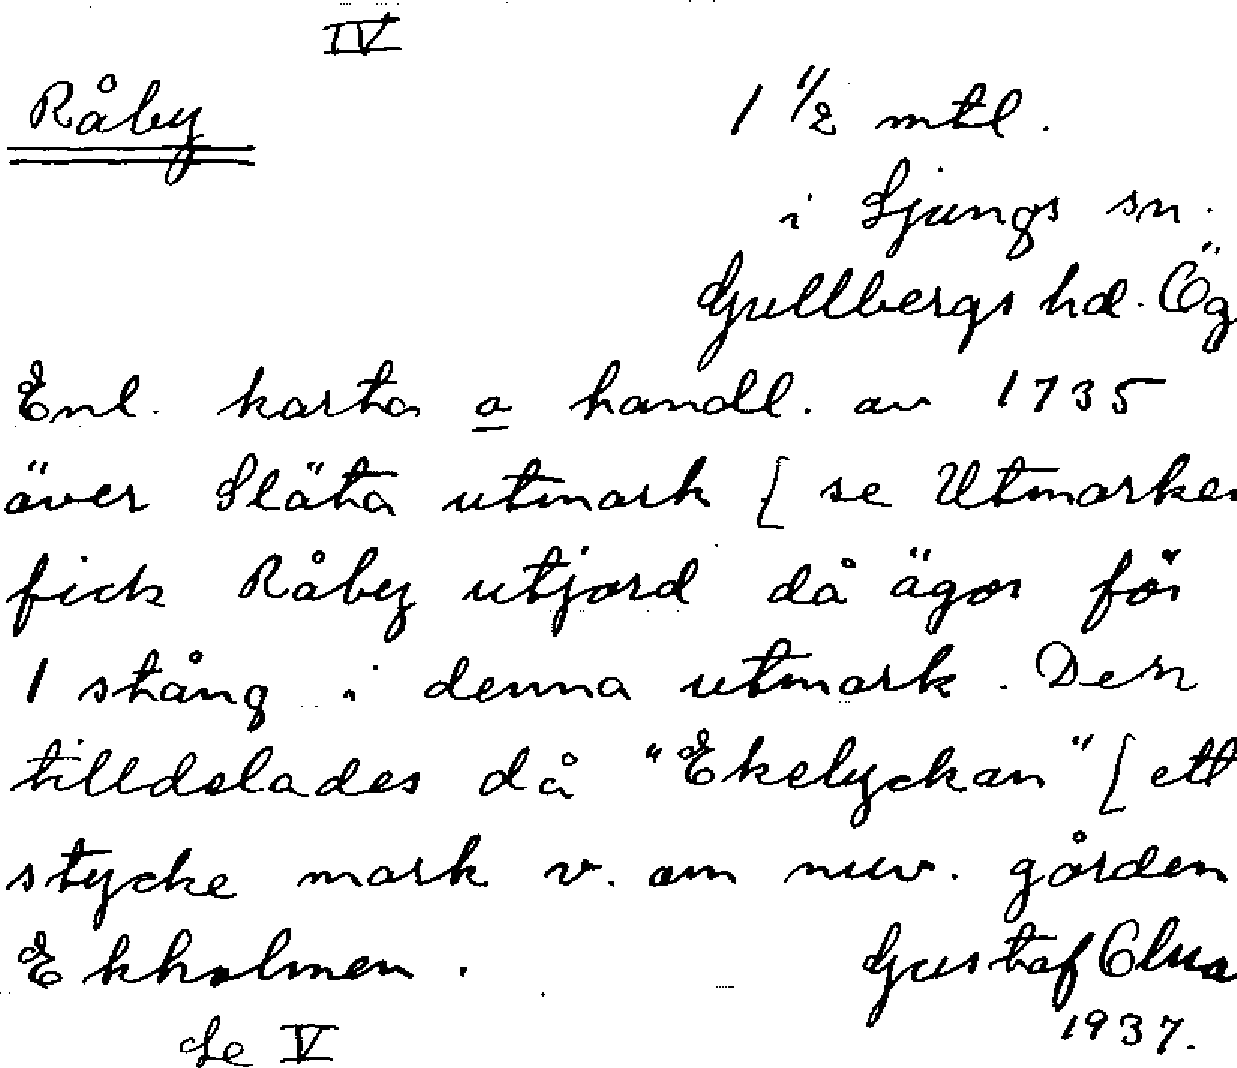 IV
Råby
1 1/2 mtl.
i Ljungs sn.
Gullbergs hd. Ög
Enl. karta o handl. av 1735
över Släta utmark [ se Utmarker
fick Råby utjord då ägor för
1 stång i denna utmark. Den
tilldelades då "Ekelyckan" [ ett
stycke mark v. om nuv. gården
Ekholmen.
Gustaf
1937.
Se V